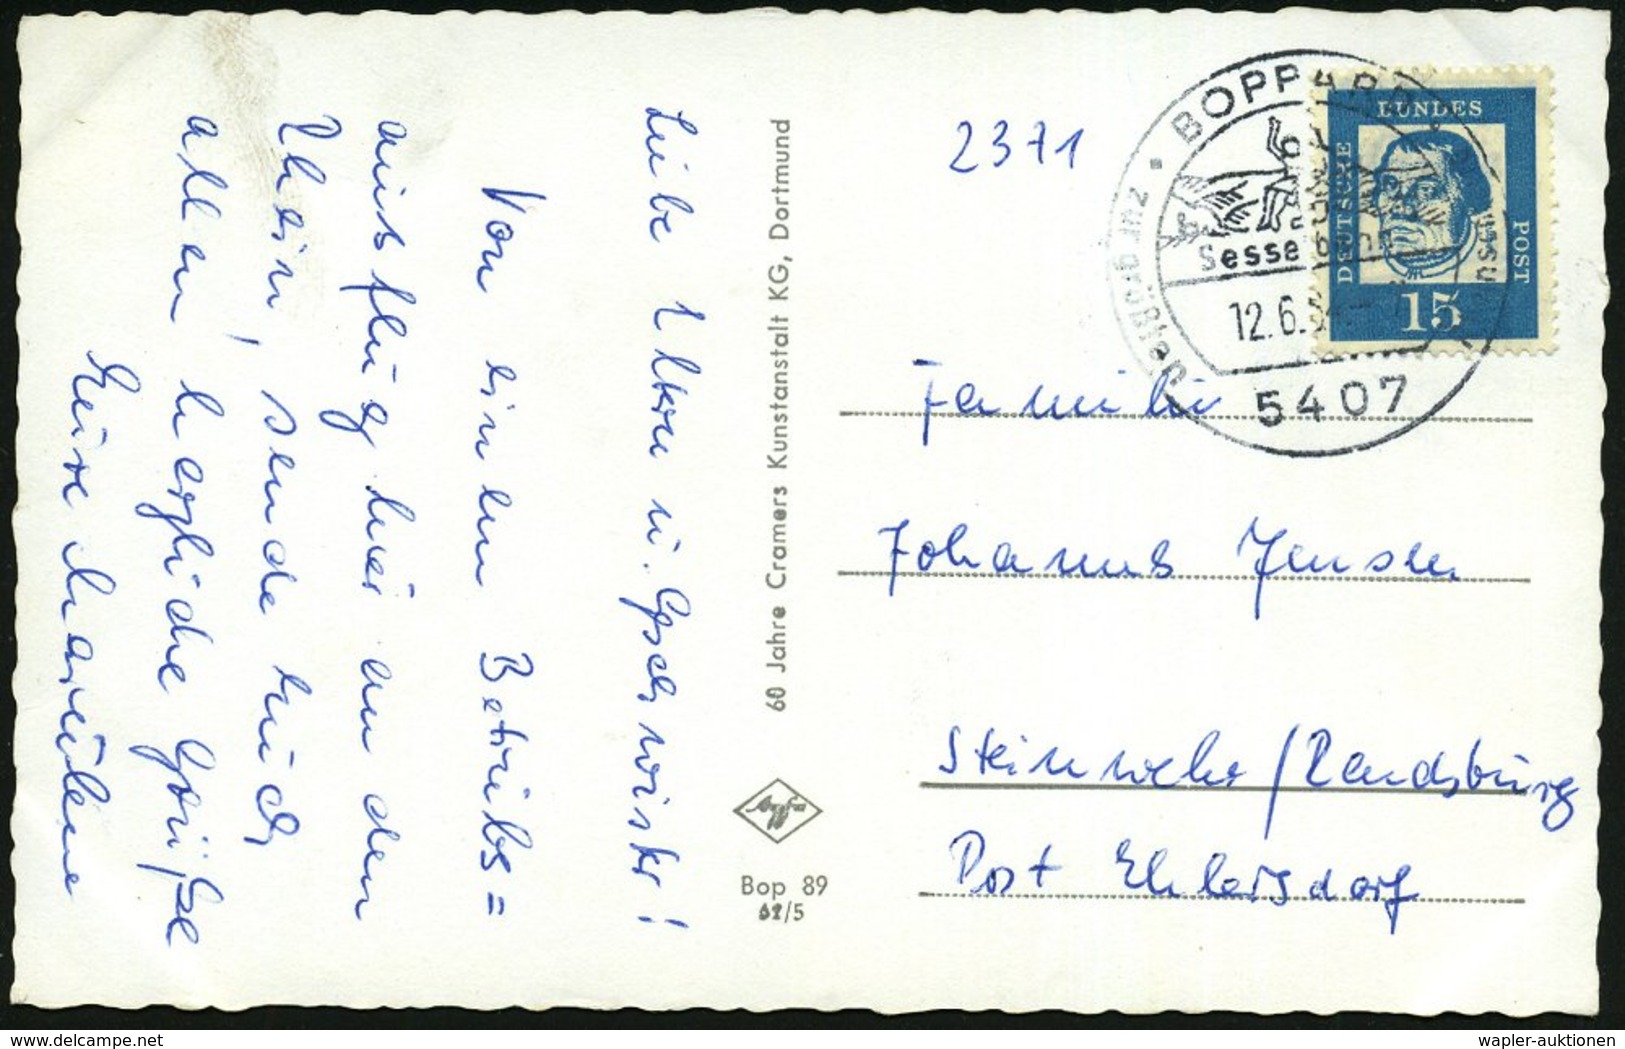 Liebe Eltern u. Geschwister!
Von einem Betriebs=
ausflug hier an den
Rhein, sende Euch
allen herzliche Grüße
Eure
60 Jahre Cramers Kunstanstalt KG, Dortmund
Agfa
Bop 89
62/5
2371
BOPPARD
zur größten
Sesselbahn
12.6.64
5407
DEUTSCHE
BUNDES
POST
15
Familie
Johannes Jensen
Steinwehr/Rendsburg
Post Ehlersdorf
delcampe.net
wapler-auktionen